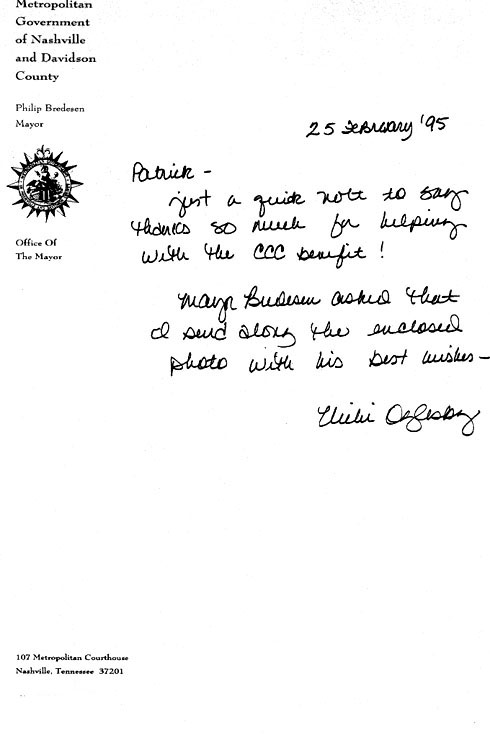 Metropolitan
Government
of Nashville
and Davidson
County
Philip Bredesen
Mayor
Office Of
The Mayor
25 February '95
Patrick -
just a quick note to say
thanks so much for helping
with the CCC benefit!
Mayor Bredesen asked that
I send along the enclosed
photo with his best wishes -
Oglesby
107 Metropolitan Courthouse
Nashville, Tennessee 37201